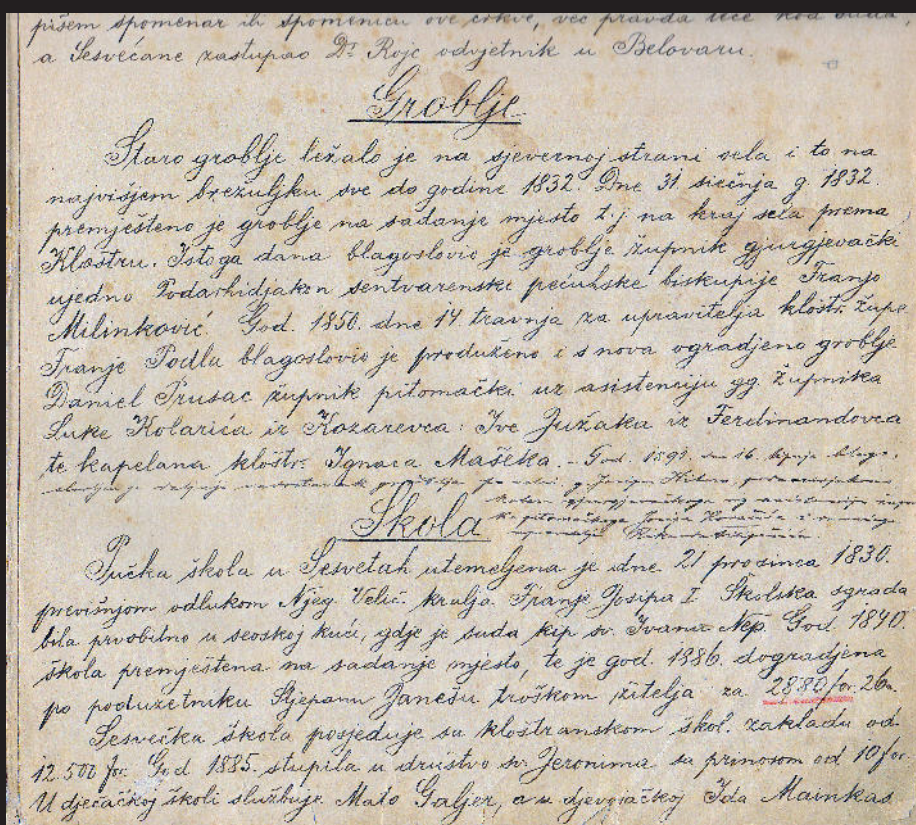 pišem spomenar ili spomenicu ove crkve, već pravda teče kod suda,
a Sesvećane zastupao Dr. Rojc odvjetnik u Belovaru.
Groblje
Staro groblje ležalo je na sjevernoj strani sela i to na
najvišjem brežuljku sve do godine 1832. Dne 31 siečnja g. 1832.
premješteno je groblje na sadanje mjesto t.j na kraj sela prema
Kloštru. Istoga dana blagoslovio je groblje župnik gjurgjevački
ujedno Podarhidjakon sentvarenski pečuhske biskupije Franjo
Milinković. God. 1850. dne 14 travnja, za upravitelja kloštr. župe
Franje Podla blagoslovio je produženo i s nova ogradjeno groblje
Daniel Prusac župnik pitomački uz asistenciju gg. župnika
Luke Kolarića iz Kozarevca i Ive Južaka iz Ferdinandovca
te kapelana kloštr. Ignaca Mašeka. - God. 1891. dne 16. lipnja blago-
Škola
Pučka škola u Sesvetah utemeljena je dne 21 prosinca 1830.
previšnjom odlukom Njeg. Velič. kralja Franje Josipa I. Školska sgrada
bila prvobitno u seoskoj kući, gdje je sada kip sv. Ivana Nep. God. 1840.
škola premještena na sadanje mjesto, te je god. 1886. dogradjena
po poduzetniku Stjepanu Janešu troškom žitelja za 2880 for. 26n.
Sesvečka škola posjeduje sa kloštranskom škol. zakladu od
12.500 for. God 1885. stupila u družtvo sv. Jeronima sa prinosom od 10 for.
U dječačkoj školi službuje Mato Galjer, a u djevojačkoj Ida Mainkas